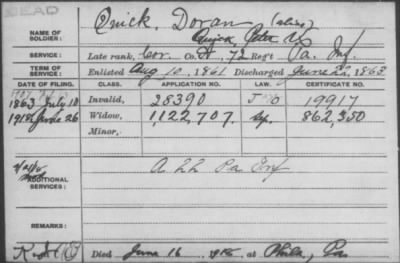 DEAD
NAME OF SOLDIER: Quick, Doran (alias)
Quick, John
SERVICE: Late rank, Cor. Co. A, 72 Reg't Pa. Inf.
TERM OF SERVICE: Enlisted Aug 10, 1861 Discharged June 22, 1863
DATE OF FILING. CLASS. APPLICATION NO. LAW. CERTIFICATE NO.
1863 July 10 Invalid, 28390 19917
1915 June 26 Widow, 1122,707. 862,350
Minor,
ADDITIONAL SERVICES: A 22 Pa Inf
REMARKS:
Died June 16 1915 at Phila, Pa